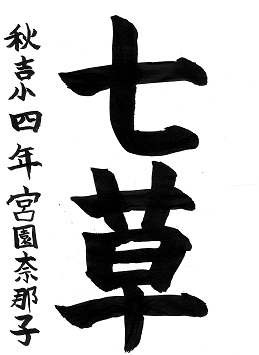 七草
秋吉小四年宮園奈那子